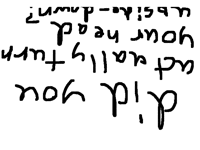 did you
actually turn
your head
upside-down?